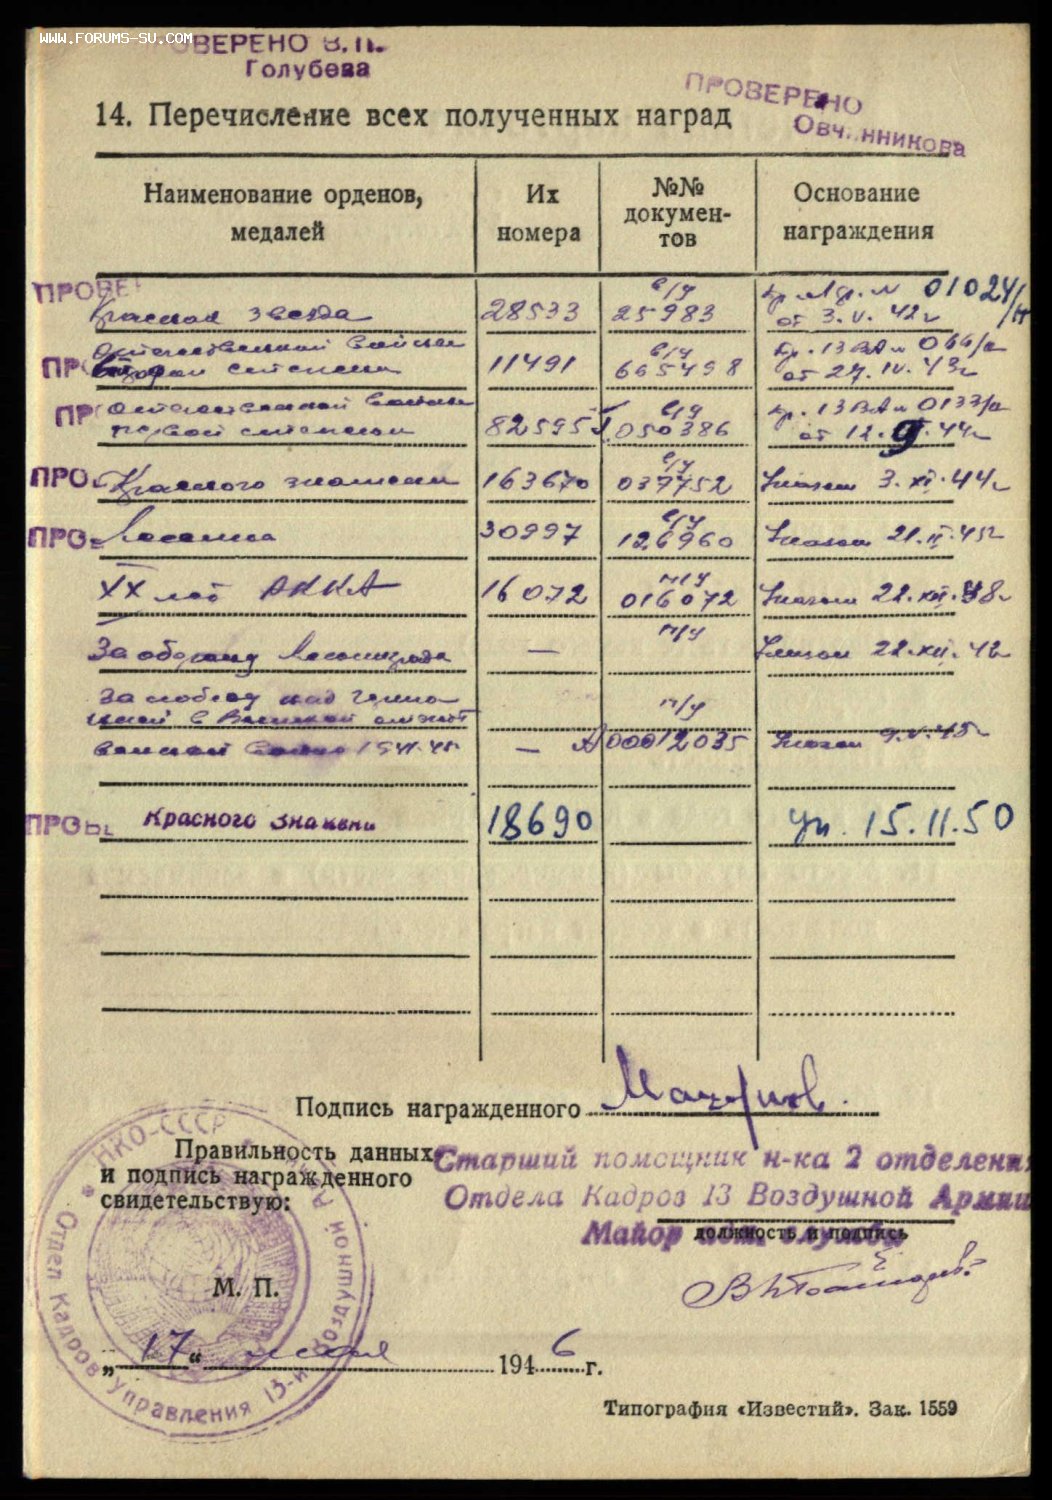 WWW.FORUMS-SU.COM
ОВЕРЕНО В.П.
Голубева
ПРОВЕРЕНО
Овч нникова
14. Перечисление всех полученных наград
Наименование орденов, медалей
Их номера
№№ документов
Основание награждения
ПРОВЕ
Красная звезда 28533 в/у 25983 пр. № 01024/н от 3.V.42г
ПР
Отечественной войны второй степени 11491 в/у 665498 пр. 13 ВА № 066/н от 27.IV.43г
ПР
Отечественной войны первой степени 82595 в/у 050386 пр. 13 ВА № 0133/н от 12.9.44г
ПРО
Красного знамени 163670 в/у 037752 Указом 3.XI.44г
ПРОВ
Ленина 30997 в/у 126960 Указом 21.II.45г
XX лет РККА 16072 п/у 016072 Указом 22.XII.38г
За оборону Ленинграда — п/у Указом 22.XII.42
За победу над Германией в Великой отечественной войне 1941-45 — п/у А 00012035 Указом 9.V.45г
ПРОВЕ
Красного знамени 18690 Ук. 15.11.50
Подпись награжденного
Правильность данных
и подпись награжденного
свидетельствую:
Старший помощник н-ка 2 отделения
Отдела Кадров 13 Воздушной Армии
Майор адм. службы
должность и подпись
М. П.
НКО-СССР
Отдел Кадров Управления 13-й Воздушной
„17“ мая 1946 г.
Типография «Известий». Зак. 1559